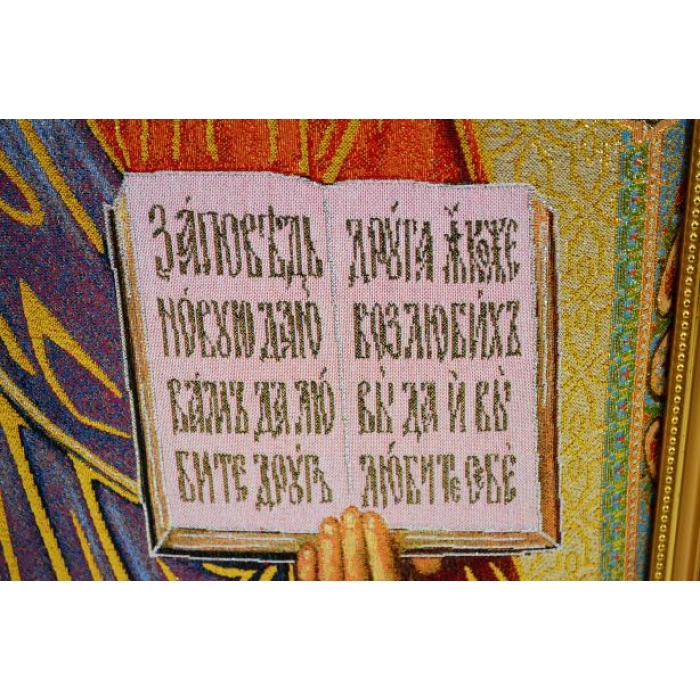 Зáповѣдь
нóвую даю́
вáмъ да лю́
бите дрýгъ
дрýга ꙗ҆́коже
возлюби́хъ
вы̀ да и҆ вы̀
лю́бите себѐ